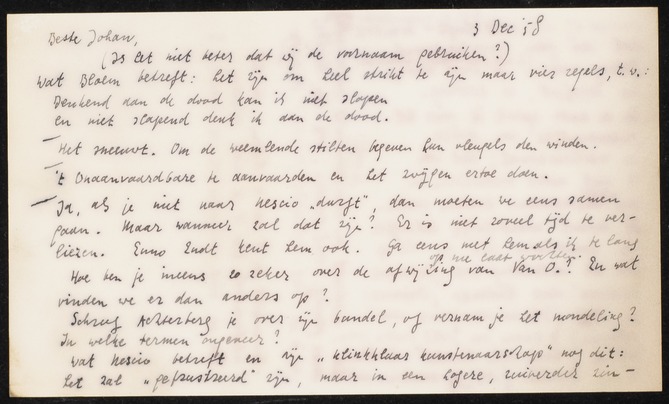 3 Dec '58
Beste Johan,
(Is het niet beter dat wij de voornaam gebruiken?)
Wat Bloem betreft: het zijn om heel strikt te zijn maar vier regels, t.w.:
Denkend aan de dood kan ik niet slapen
en niet slapend denk ik aan de dood.
— Het sneeuwt. Om de wemelende stilten begeven hun vleugels den winden.
— 't Onaanvaardbare te aanvaarden en het zwijgen ertoe doen.
— Ja, als je niet naar Nescio „durft", dan moeten we eens samen
gaan. Maar wanneer zal dat zijn? Er is niet zoveel tijd te ver-
liezen. Enno Endt kent hem ook. Ga eens met hem als ik te lang
op me laat wachten.
Hoe ben je ineens zo zeker over de afwijzing van Van O.? En wat
vinden we er dan anders op?
Schreef Achterberg je over zijn bundel, of vernam je het mondeling?
In welke termen ongeveer?
Wat Nescio betreft en zijn „klinkklaar kunstenaarschap" nog dit:
het zal „gefrustreerd" zijn, maar in een hogere, zuiverder zin—